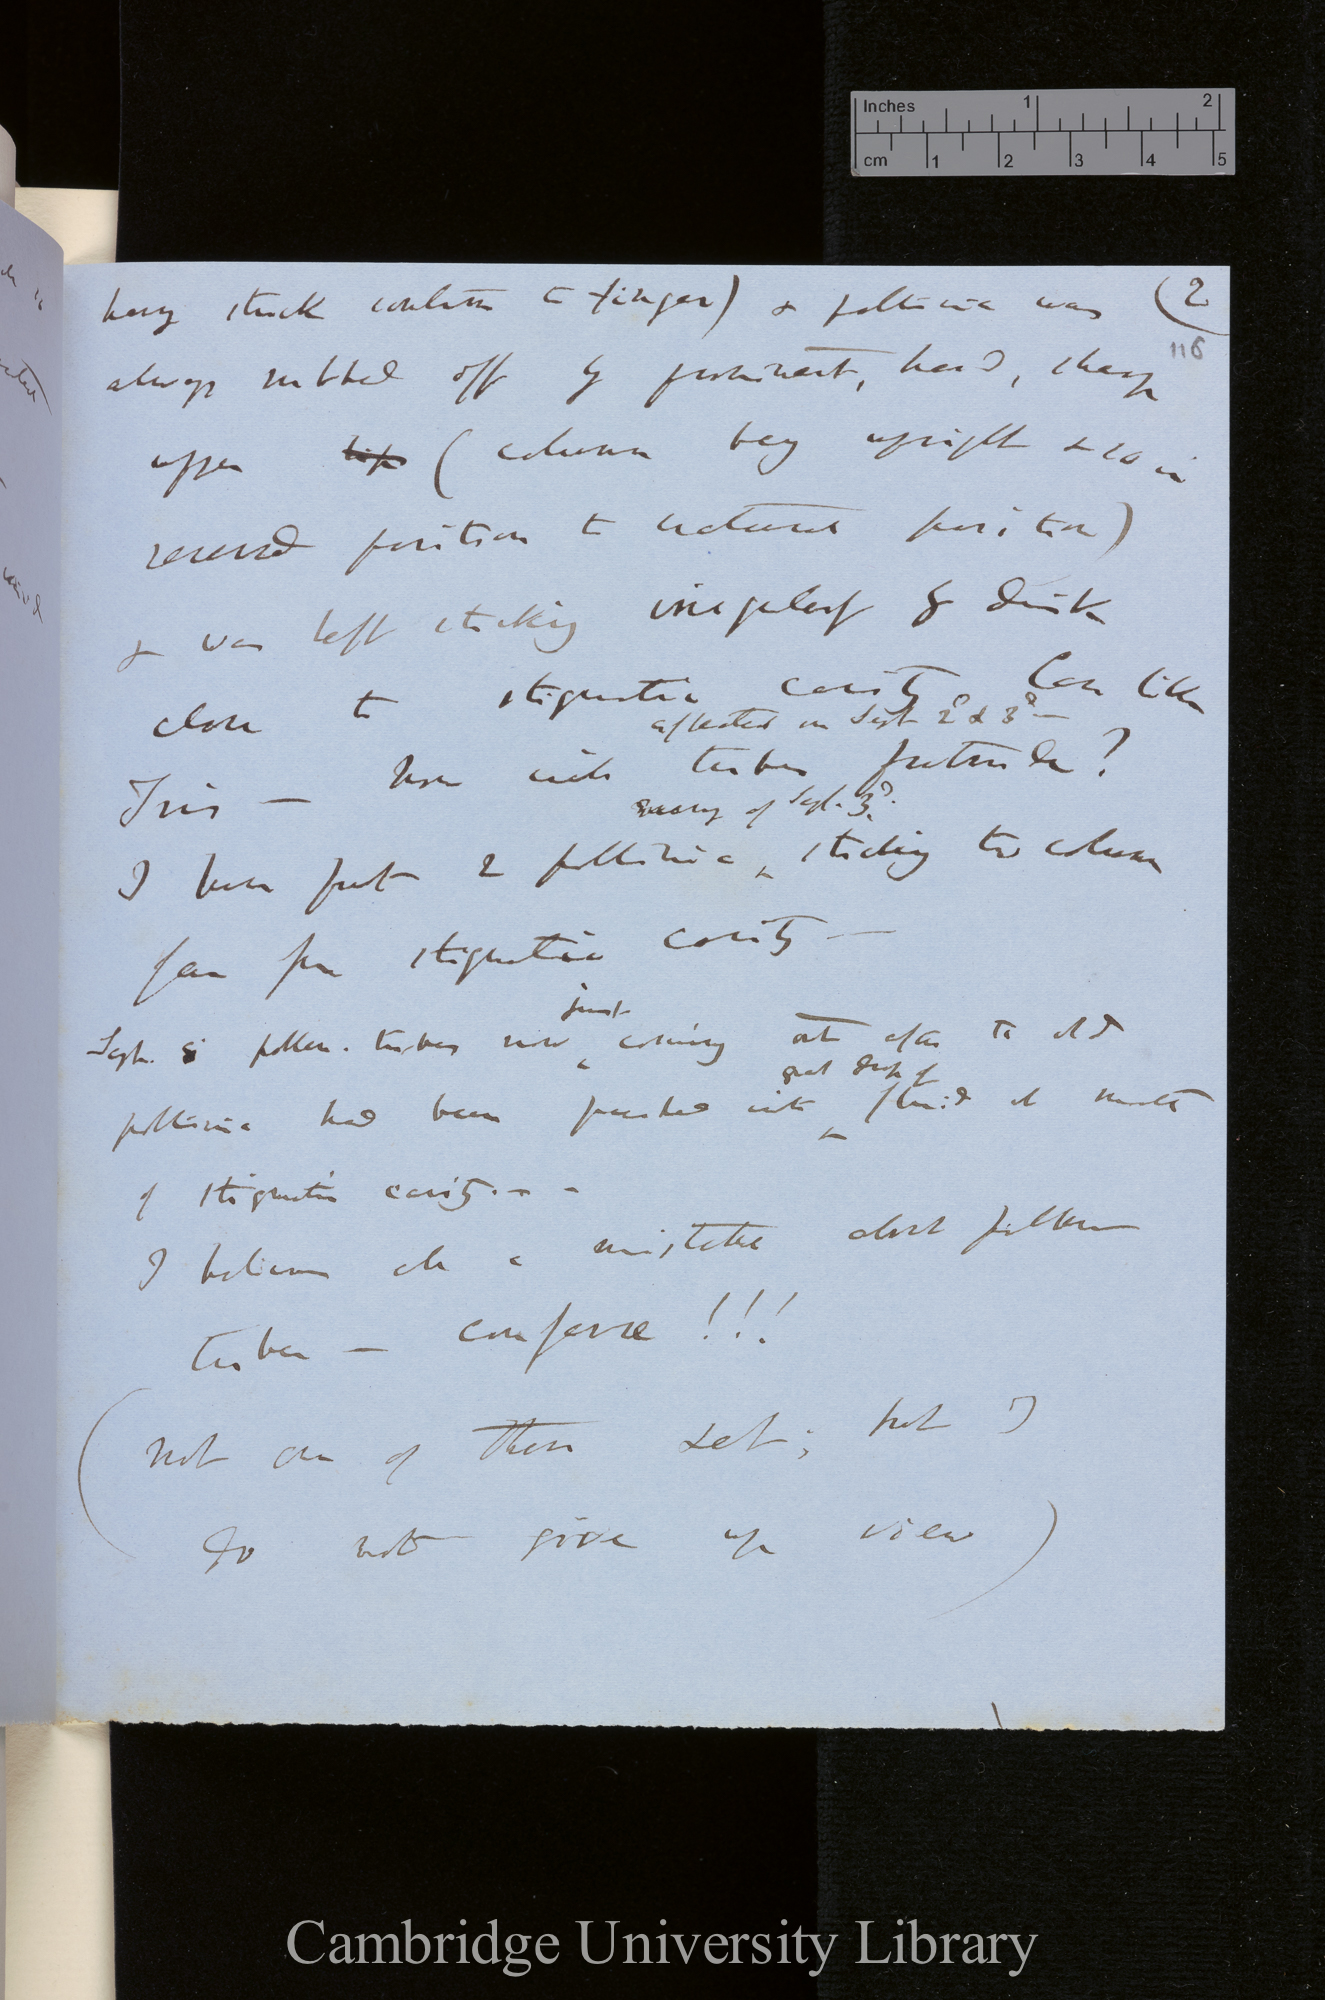 Inches 1 2
cm 1 2 3 4 5
(2
116
being stuck to finger) & pollinia was
always rubbed off by prominent, hard, sharp
upper lip (column being upright & so in
reversed position to natural position)
& was left sticking irregularly by disk
close to stigmatic cavity
affected on Sept 2d & 3d —
Iris — how with tubes protrude?
of Sept. 3d.
I have put 2 pollinia sticking to column
far from stigmatic cavity —
just
Sept. pollen-tubes now coming out after the old
great drop of
pollinia had been pushed into fluid at mouth
of stigmatic cavity. — —
I believe all a mistake about pollen
tubes — confervæ !!!
(not one of these set; but I
do not give up view)
Cambridge University Library